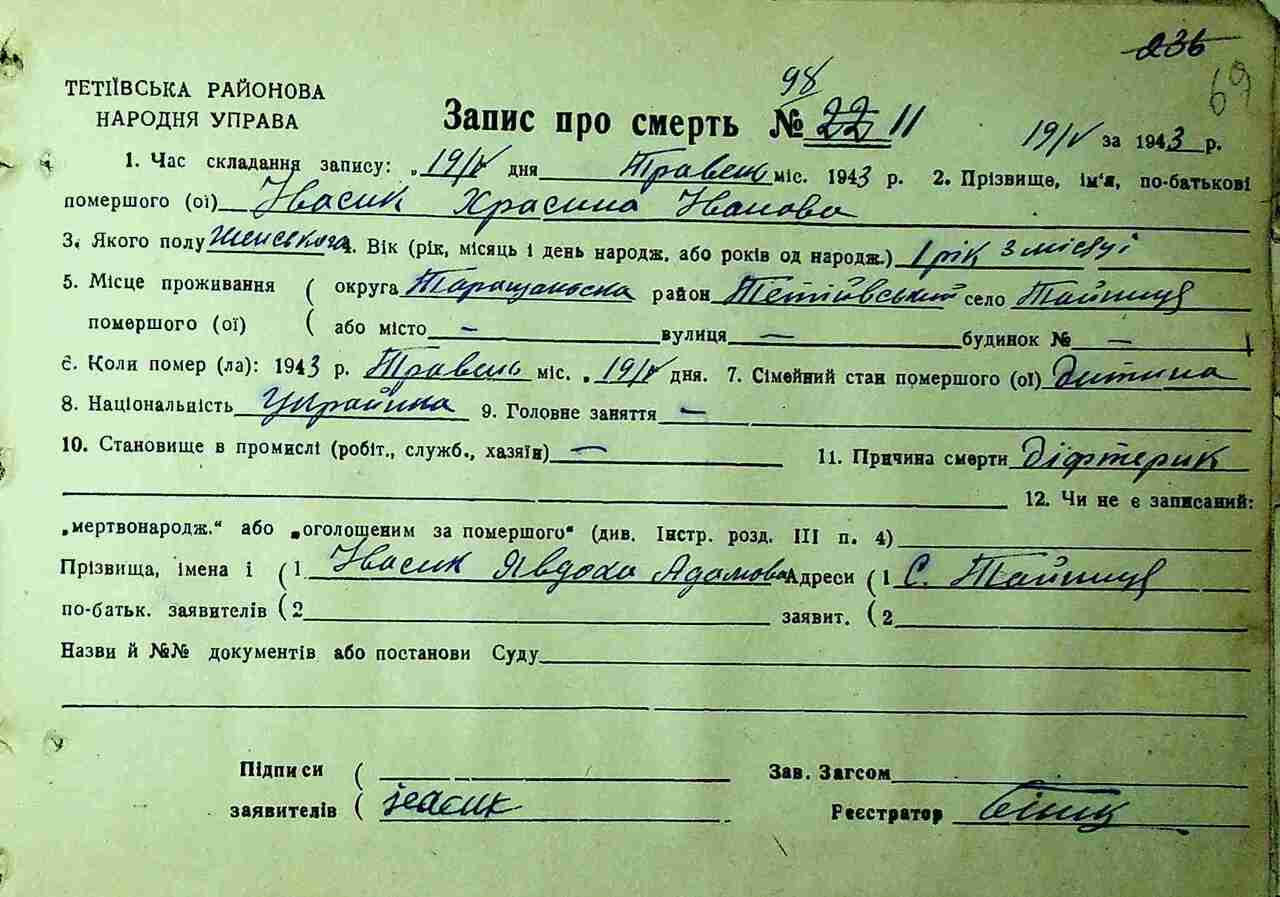 236
69
ТЕТІЇВСЬКА РАЙОНОВА
НАРОДНЯ УПРАВА
98
Запис про смерть № 22 11
19/V за 1943 р.
1. Час складання запису: „19/V дня Травень міс. 1943 р. 2. Прізвище, ім'я, по-батькові
помершого (ої) Івасик Храсина Іванова
3. Якого полу Женського 4. Вік (рік, місяць і день народж. або років од народж.) 1 рік 3 місяці
5. Місце проживання ( округа Таращанська район Тетіївський село Тайниця
помершого (ої) ( або місто — вулиця — будинок № —
6. Коли помер (ла): 1943 р. Травень міс. „19/V дня. 7. Сімейний стан помершого (ої) Дитина
8. Національність Українка 9. Головне заняття —
10. Становище в промислі (робіт., служб., хазяїн) — 11. Причина смерти Діфтерик
12. Чи не є записаний:
„мертвонародж.“ або „оголошеним за помершого“ (див. Інстр. розд. III п. 4)
Прізвища, імена і ( 1 Івасик Явдоха Адамова Адреси ( 1 С. Тайниця
по-батьк. заявителів ( 2 заявит. ( 2
Назви й №№ документів або постанови Суду
Підписи ( Зав. Загсом
заявителів ( івасик Реєстратор